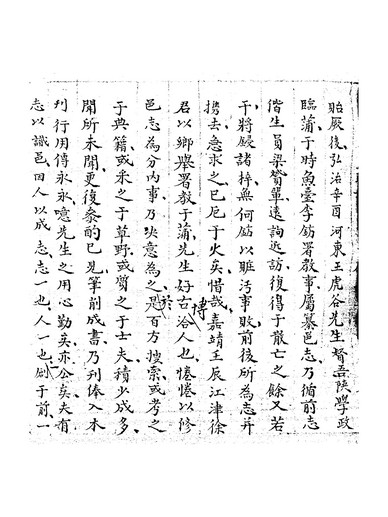 貽厥後弘治辛酉河東王虎谷先生督吾陝學政
臨蒲于時魚臺李鈁署教事屬纂邑志乃循前志
偕生員梁贊輩遠詢近訪復得于散亡之餘又若
干將鋟諸梓無何鈁以賍汚事敗前後所為志并
擄去急求之已厄于火矣惜哉嘉靖壬辰江津徐
君以鄉舉署教于蒲先生好古博洽人也惓惓以修
邑志為分内事乃决意為之於是百方搜索或考之
于典籍或采之于草野或質之于士夫積少成多
聞所未聞更復叅酌已見筆削成書乃刋俸入木
刋行用傳永永噫先生之用心勤矣亦公矣夫有
志以識邑因人以成志志一也人一也創于前一